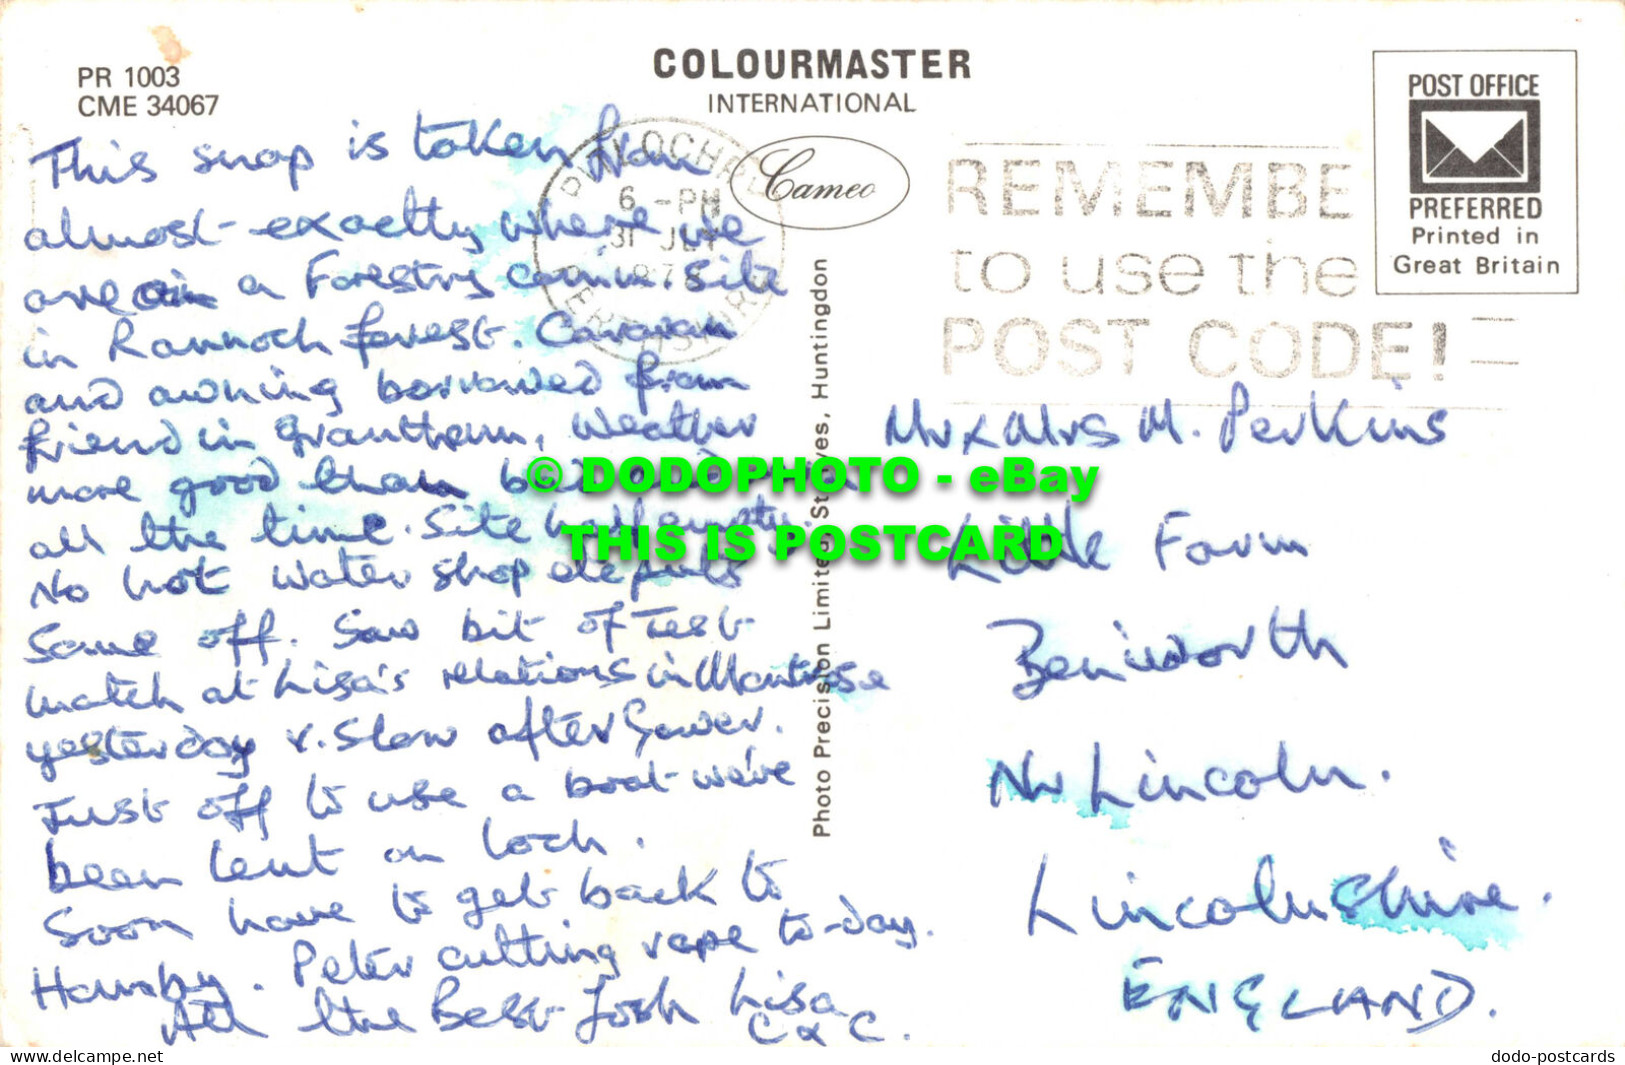 PR 1003
CME 34067
COLOURMASTER
INTERNATIONAL
Cameo
POST OFFICE
PREFERRED
Printed in
Great Britain
PITLOCHRY
6 - PM
31 JLY
PERTHSHIRE
REMEMBE
to use the
POST CODE!
This snap is taken from
almost exactly where we
are on a Forestry Comm. Site
in Rannoch forest. Caravan
and awning borrowed from
friend in Grantham, Weather
more good than bad
all the time. Site half empty.
No hot water shop depends
Same off. Saw bit of Test
match at Lisa's relations in Montrose
yesterday v. Slow after Gower.
Just off to use a boat we've
been lent on loch.
Soon have to get back to
Hamby. Peter cutting rape to-day.
All the Best Josh Lisa
C & C.
Mr & Mrs M. Perkins
Little Farm
Beniworth
Nr Lincoln.
Lincolnshire.
ENGLAND.
Photo Precision Limited, St. Ives, Huntingdon
© DODOPHOTO - eBay
THIS IS POSTCARD
www.delcampe.net
dodo-postcards